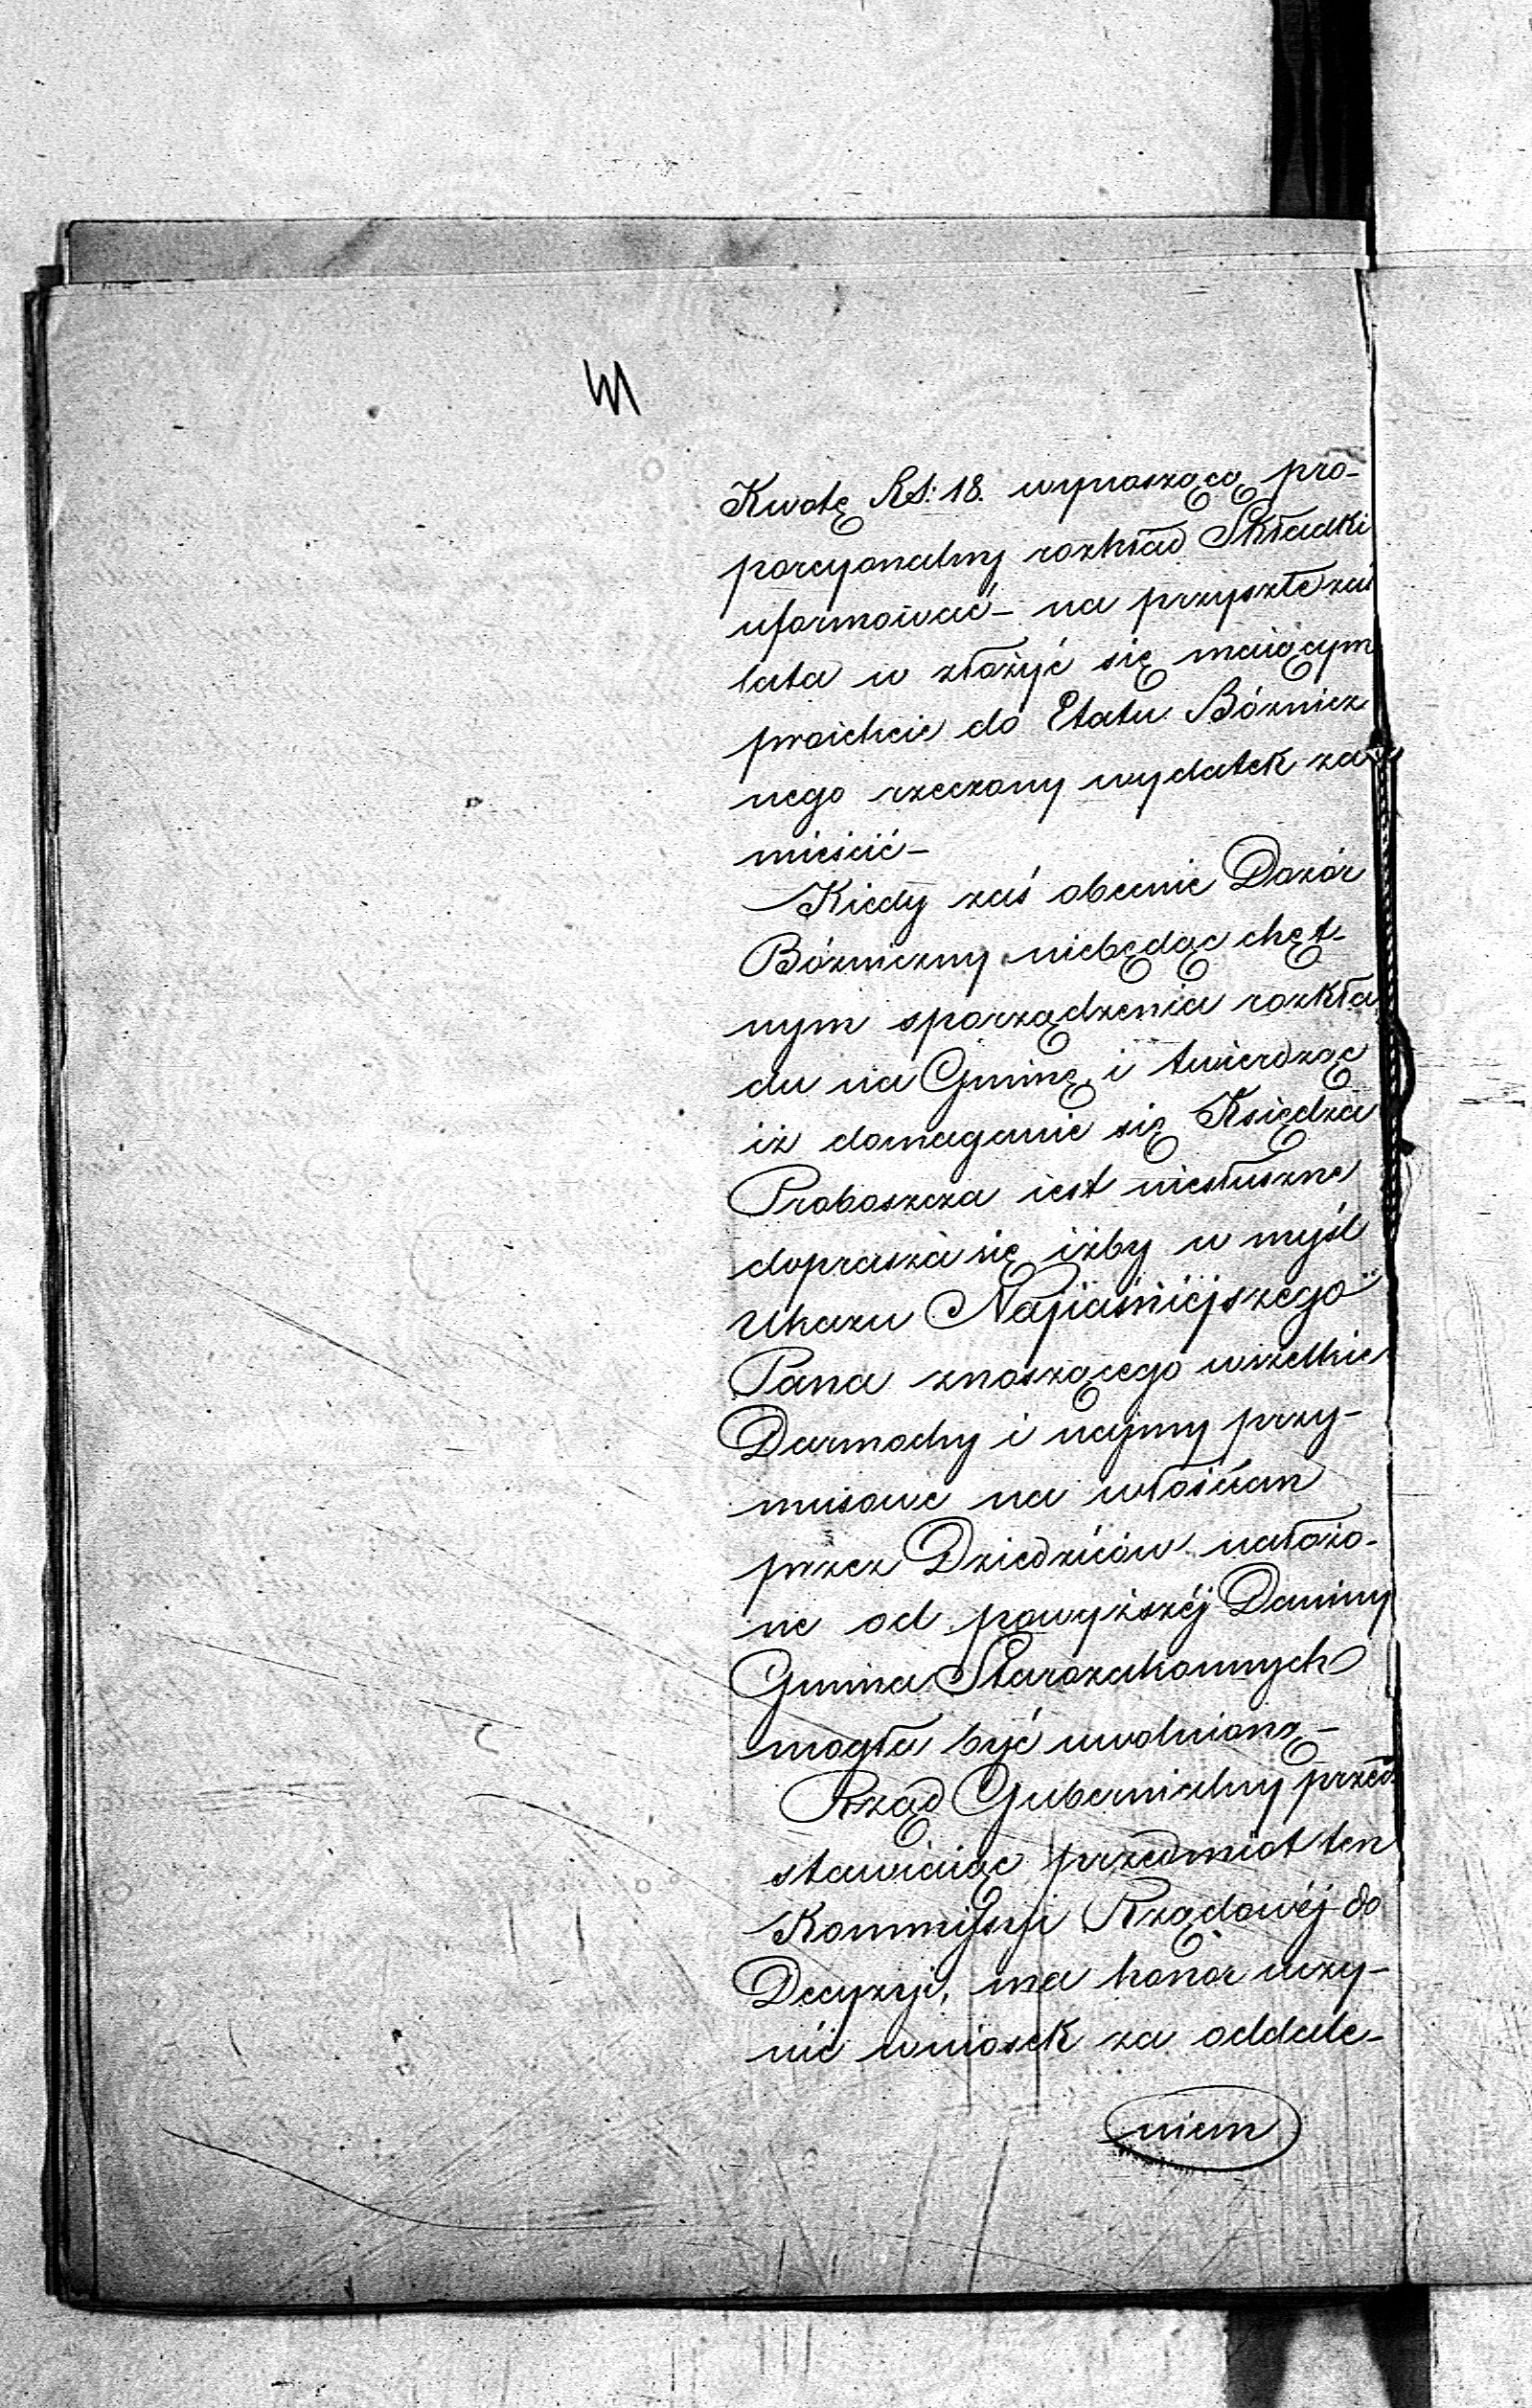 Kwotę RS: 18. wynoszącą pro-
porcyonalny rozkład Składki
uformować – na przyszłe zaś
lata w złożyć się maiącym
proiekcie do Etatu Bóznicz
nego rzeczony wydatek za
mieścić –
Kiedy zaś obecnie Dozór
Bózniczny niebędąc chęt-
nym sporządzenia rozkła
du na Gminę i twierdząc
iż domaganie się Księdza
Proboszcza iest niesłuszne
doprasza się iżby w myśl
Ukazu Najiaśniéjszego
Pana znoszącego wszelkie
Darmochy i najmy przy-
musowe na włościan
przez Dziedziców nałożo-
ne od powyższéj Daniny
Gmina Starozakonnych
mogła być uwolnioną –
Rząd Gubernialny przed
stawiaiąc przedmiot ten
Kommissyi Rządowéj do
Decyzyi, ma honor uczy-
nić wniosek za oddale-
niem